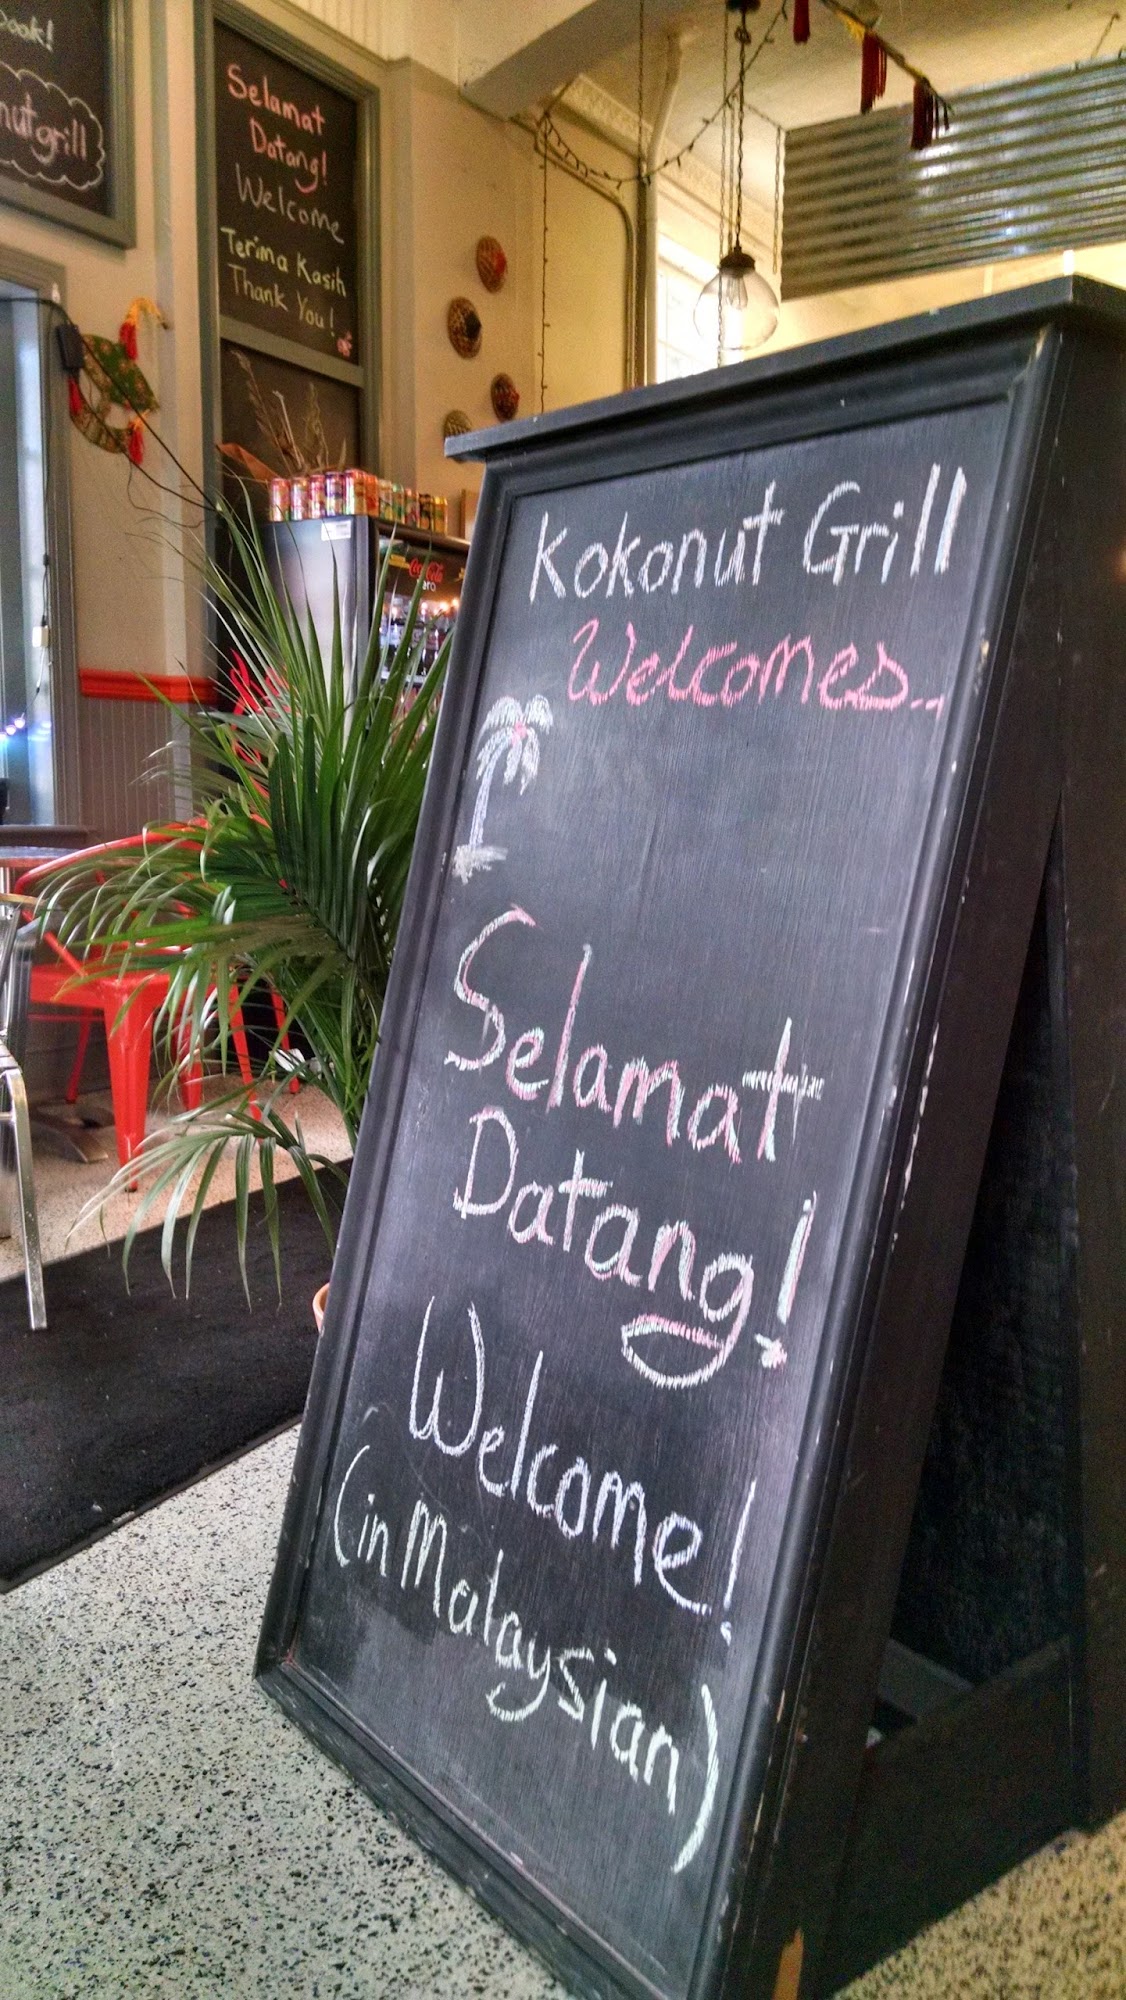 ook!
nutgrill
Selamat
Datang!
Welcome
Terima Kasih
Thank You!
Coca-Cola
zero
Kokonut Grill
Welcomes..
Selamat
Datang!
Welcome!
(in Malaysian)